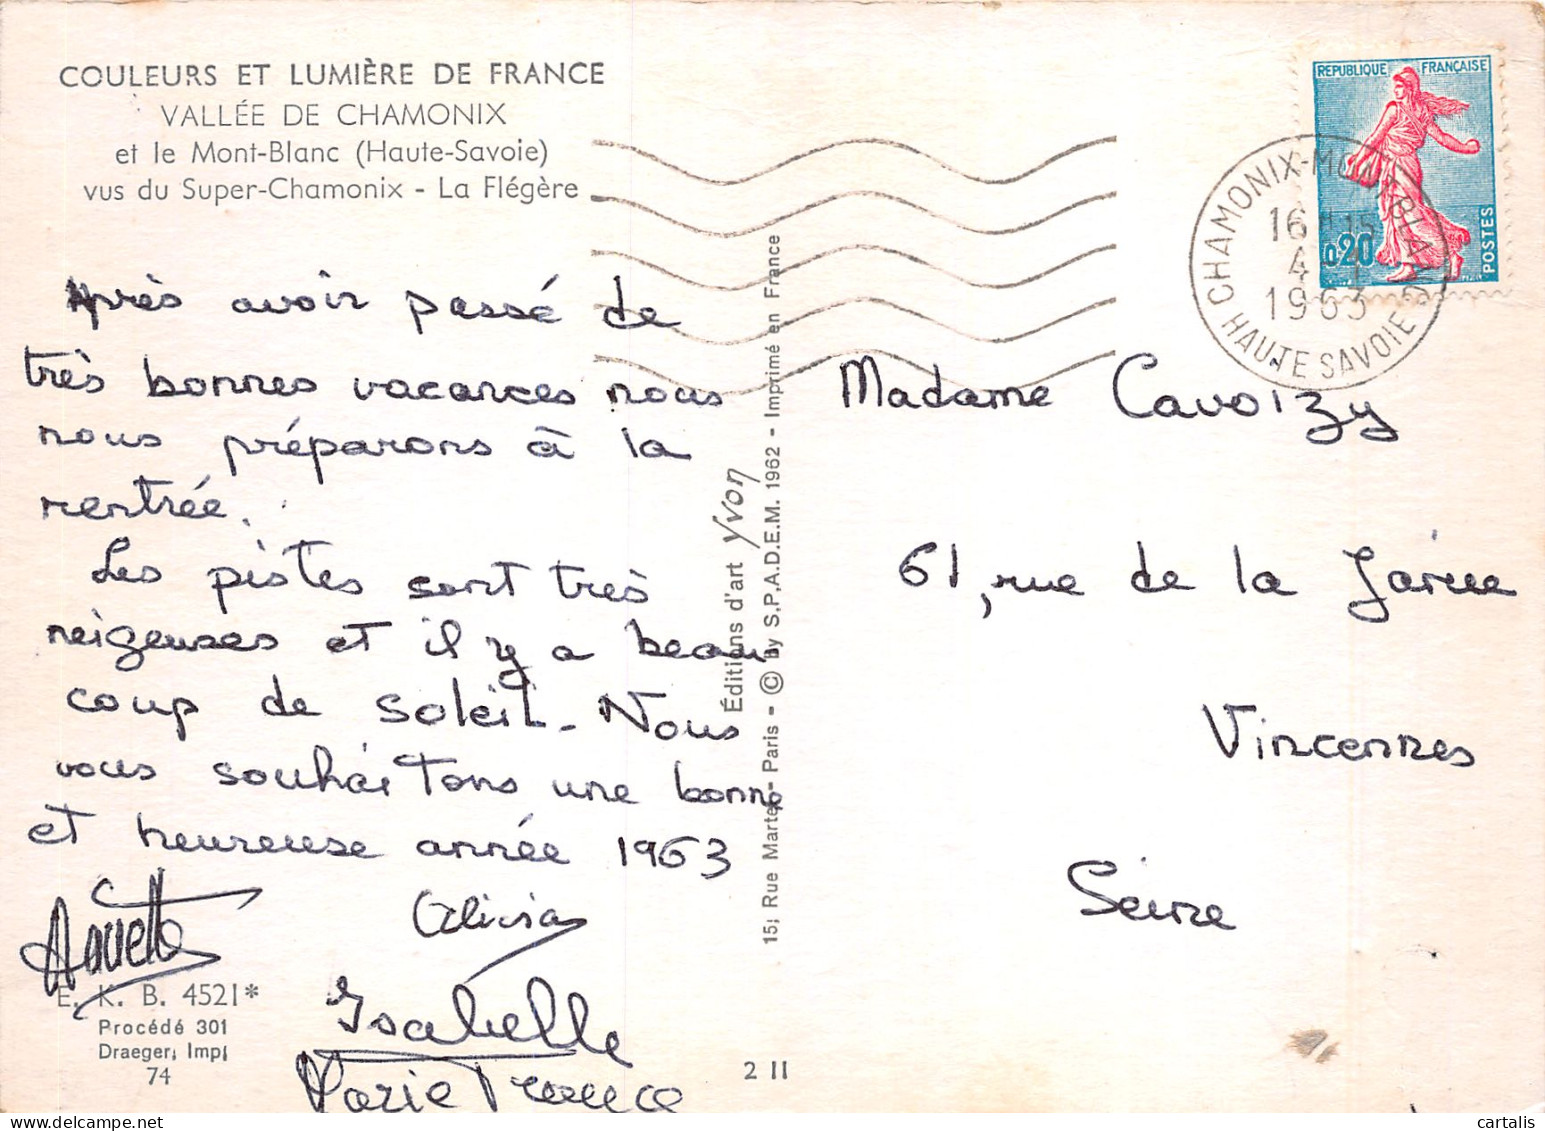 COULEURS ET LUMIÈRE DE FRANCE
VALLÉE DE CHAMONIX
et le Mont-Blanc (Haute-Savoie)
vus du Super-Chamonix - La Flégère
Après avoir passé de
très bonnes vacances nous
nous préparons à la
rentrée.
Les pistes sont très
neigeuses et il y a beau
coup de soleil - Nous
vous souhaitons une bonne
et heureuse année 1963
Olivia
Isabelle
Marie France
E. K. B. 4521*
Procédé 301
Draeger, Imp.
74
2 11
Éditions d'art Yvon
15, Rue Martel - Paris - © by S.P.A.D.E.M. 1962 - Imprimé en France
REPUBLIQUE FRANÇAISE
0,20
POSTES
CHAMONIX-MONT-BLANC
16 H 15
4 - 1
1963
HAUTE SAVOIE
Madame Cavoizy
61, rue de la Jarrée
Vincennes
Seine
cartalis